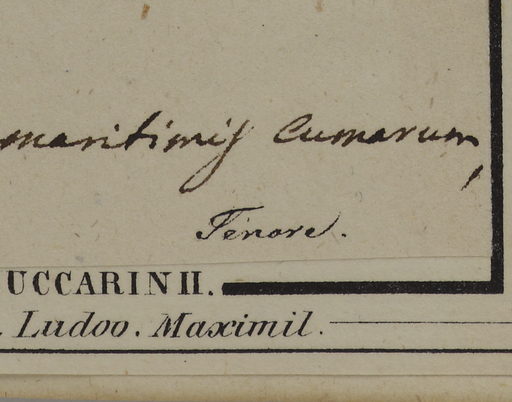 maritimis Cumarum,
Tenore.
UCCARINII.
. Ludov. Maximil.